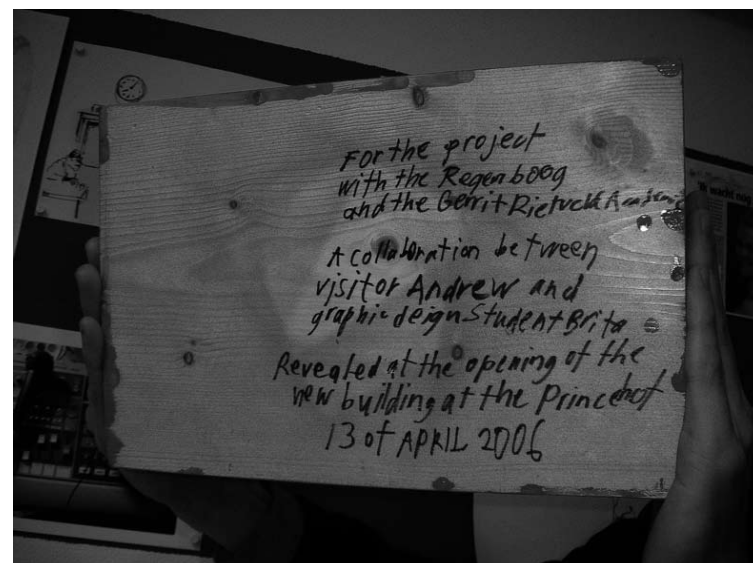 For the project
with the Regenboog
and the Gerrit Rietveld Academie
A collaboration between
visitor Andrew and
graphic deign Student Brita
Revealed at the opening of the
new building at the Princehof
13 of APRIL 2006
wacht nog